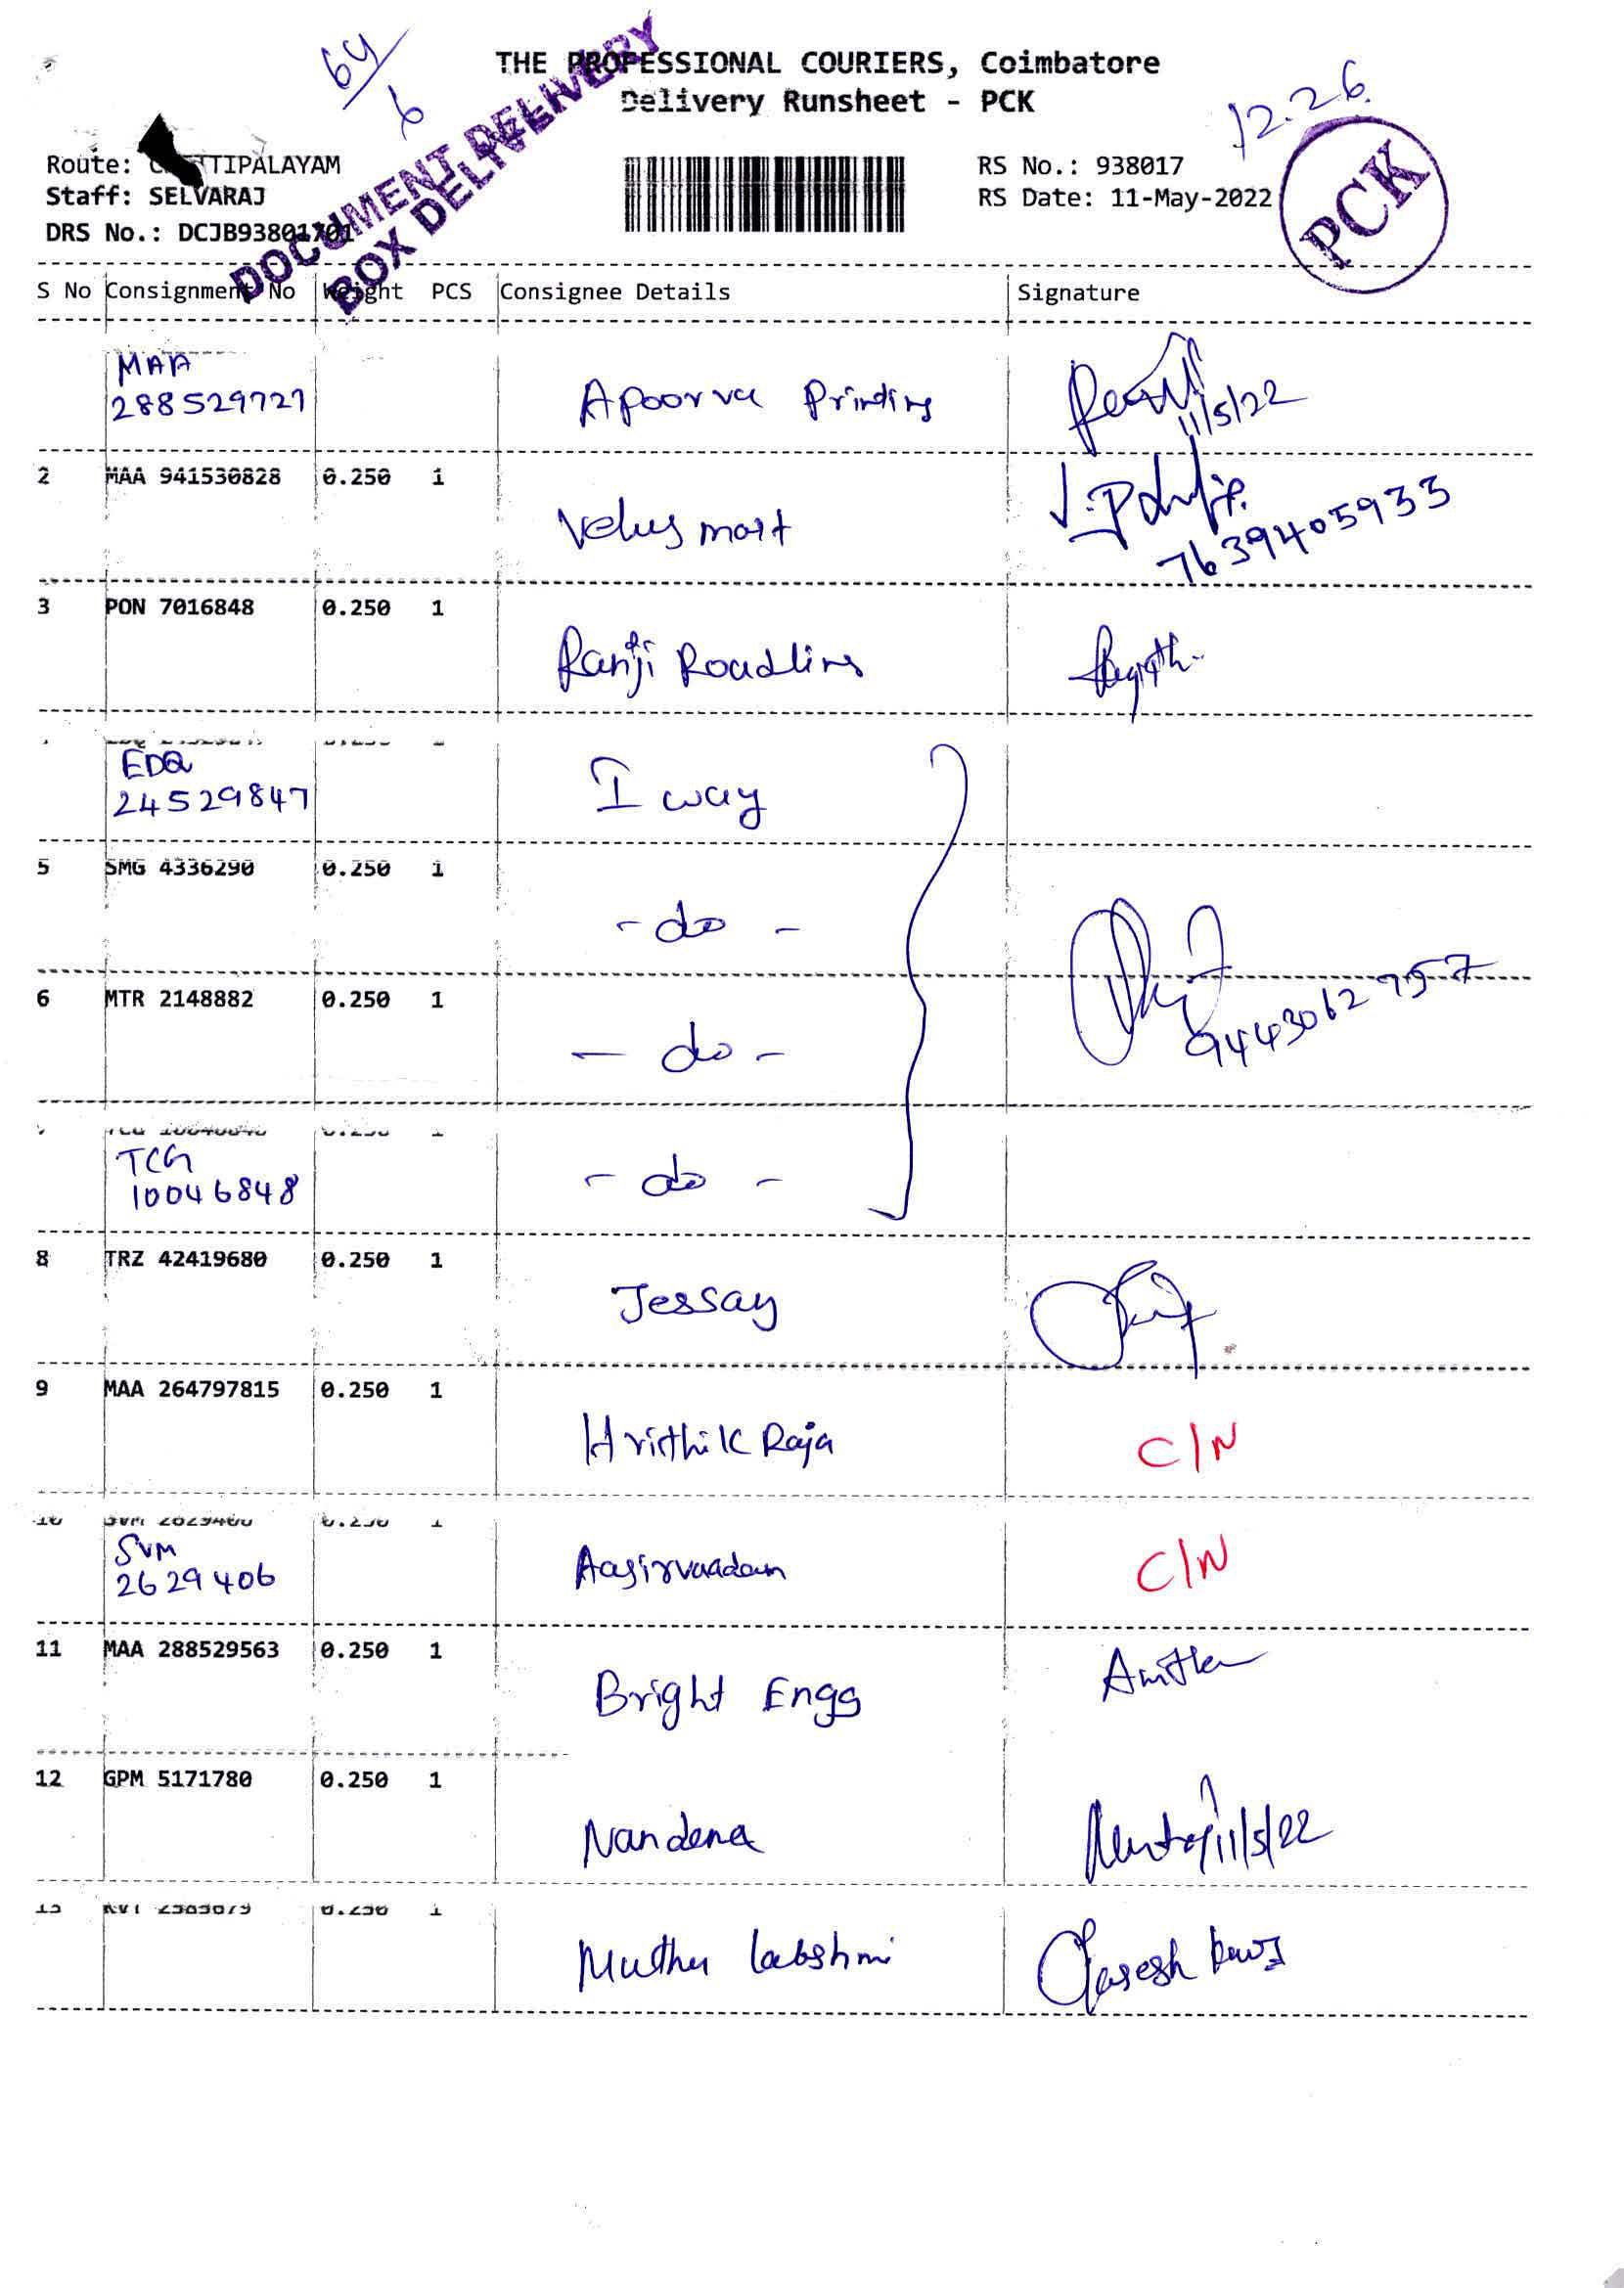 64
6
THE PROFESSIONAL COURIERS, Coimbatore
Delivery Runsheet - PCK
12.26.
DOCUMENT DELIVERY
BOX DELIVERY
PCK
Route: TTIPALAYAM
Staff: SELVARAJ
DRS No.: DCJB93801701
RS No.: 938017
RS Date: 11-May-2022
S No Consignment No Weight PCS Consignee Details Signature
MAA
288529727 Apoorva Printing 11/5/22
2 MAA 941530828 0.250 1
Velus mart
7639405933
3 PON 7016848 0.250 1
Ranji Roadlins
EDQ
24529847 I way
5 SMG 4336290 0.250 1
- do -
6 MTR 2148882 0.250 1
- do -
9443062757
TCG
10046848 - do -
8 TRZ 42419680 0.250 1
Jessay
9 MAA 264797815 0.250 1
Hrithik Raja C/N
10 0.250 1
SVM
2629406 Aasirvaadam C/N
11 MAA 288529563 0.250 1
Bright Engg
12 GPM 5171780 0.250 1
Nandena 11/5/22
13 0.250 1
Muthu labshmi